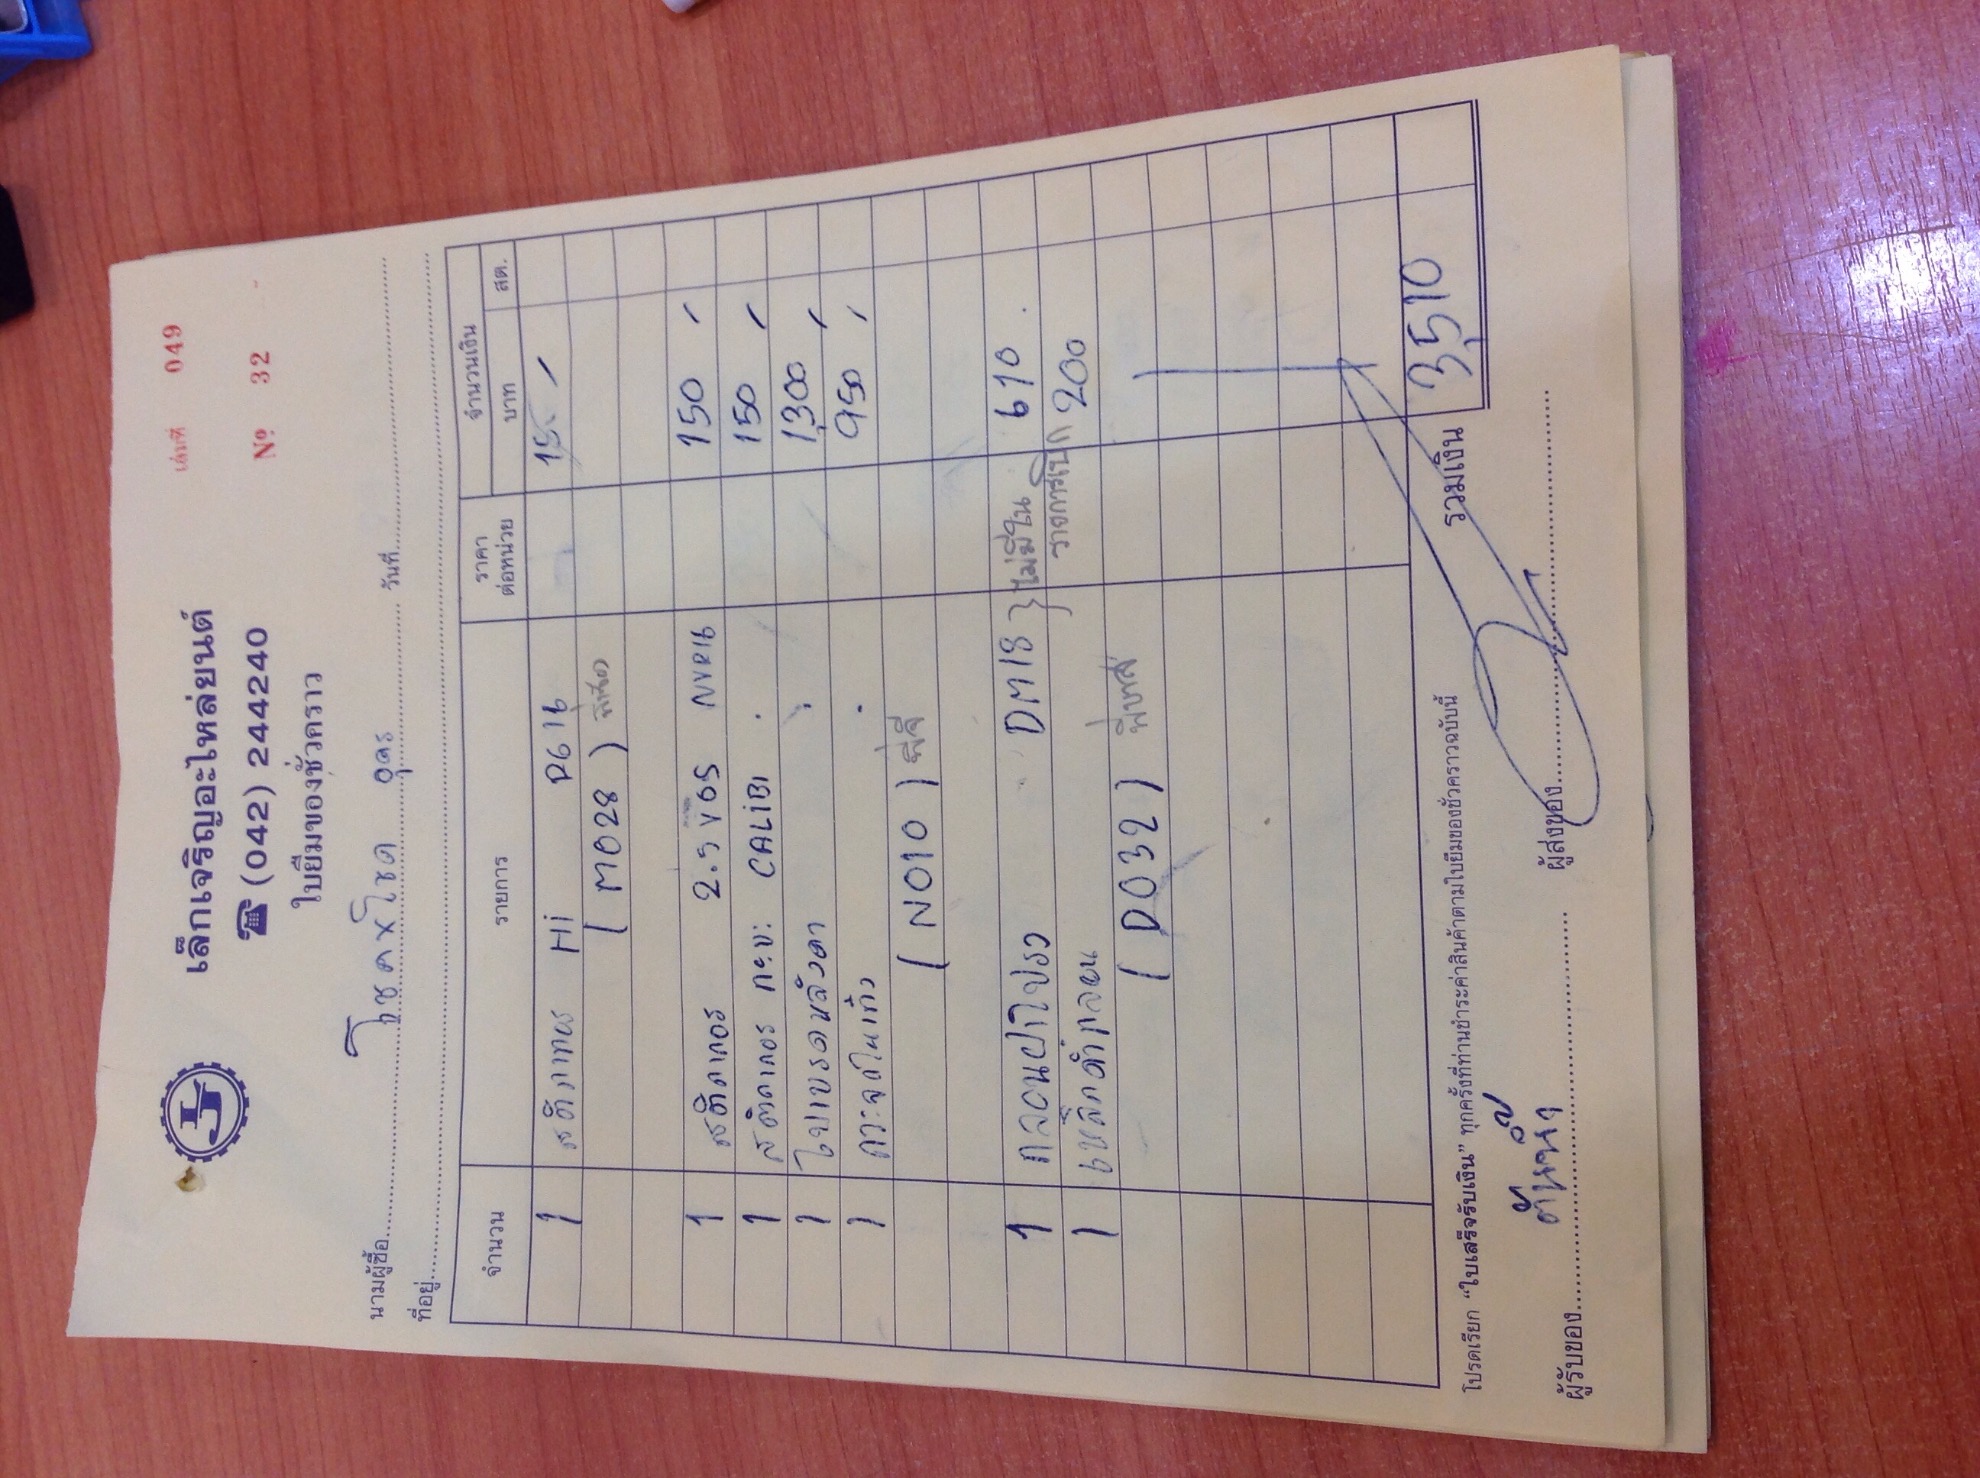 เล่มที่ 049
เล็กเจริญอะไหล่ยนต์
☎ (042) 244240
Nº 32
ใบยืมของชั่วคราว
นามผู้ซื้อ โชคชัยโชค อุดร วันที่
ที่อยู่
จำนวน รายการ ราคาต่อหน่วย จำนวนเงิน
บาท สต.
1 สติกเกอร์ Hi D616
( M028 )
1 สติกเกอร์ 2.5 VGS NVR16 150
1 สติกเกอร์ กะบะ CALIBI 150
1 ใบเบรคหลังคา 1,300
1 กระจกในเก๋ง 950
( N010 )
1 กลอนฝาโปรง DM18 } ไม่มีใน 610
1 เหล็กค้ำกลอน รายการเบิก 200
( D032 )
รวมเงิน 3,510
โปรดเรียก "ใบเสร็จรับเงิน" ทุกครั้งที่ท่านชำระค่าสินค้าตามใบยืมของชั่วคราวฉบับนี้
ผู้รับของ ผู้ส่งของ